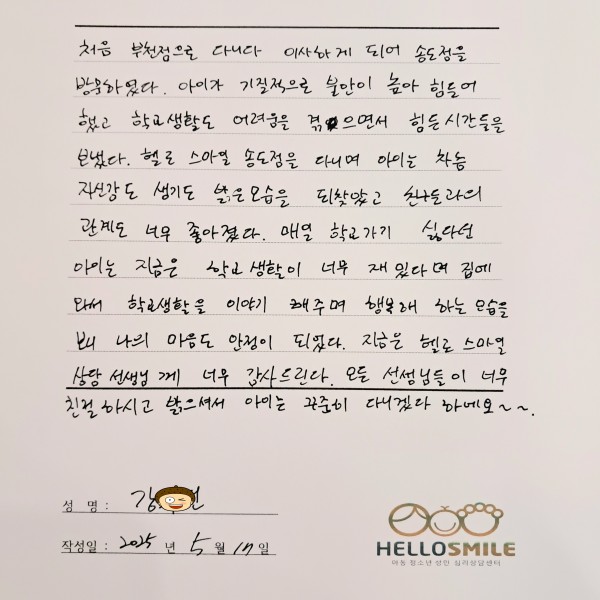 처음 부천점으로 다니다 이사하게 되어 송도점을
방문하였다. 아이가 기질적으로 불안이 높아 힘들어
했고 학교생활도 어려움을 겪으면서 힘든시간들을
보냈다. 헬로 스마일 송도점을 다니며 아이는 차츰
자신감도 생기고 밝은모습을 되찾았고 친구들과의
관계도 너무 좋아졌다. 매일 학교가기 싫다던
아이는 지금은 학교생활이 너무 재밌다며 집에
와서 학교생활을 이야기 해주며 행복해 하는 모습을
보니 나의 마음도 안정이 되었다. 지금은 헬로 스마일
상담 선생님께 너무 감사드린다. 모든 선생님들이 너무
친절하시고 밝으셔서 아이는 꾸준히 다니겠다 하네요~~.
성 명 : 강
작성일 : 2025 년 5 월 17 일
HELLOSMILE
아동 청소년 성인 심리상담센터